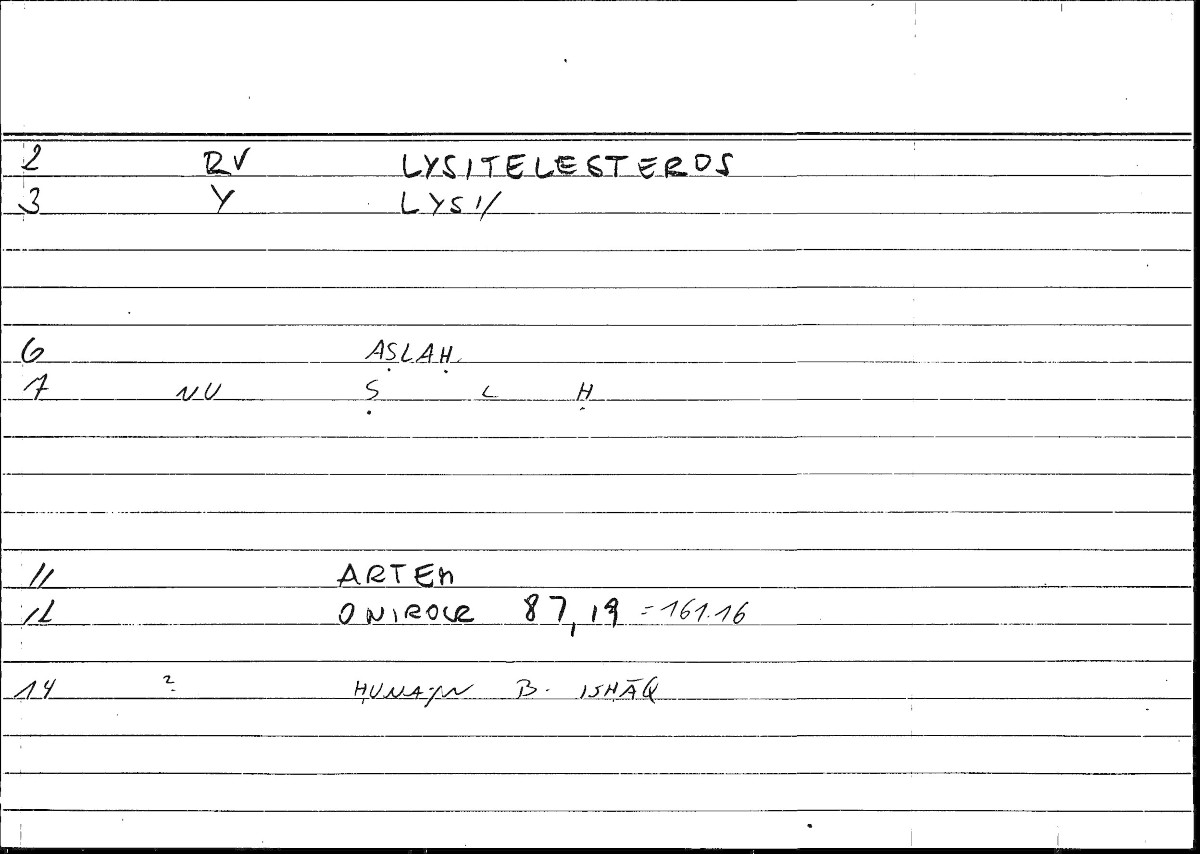 2 RV LYSITELESTEROS
3 Y LYSI/
6 AṢLAḤ
7 NU Ṣ L Ḥ
11 ARTEM
12 ONIROCR 87,19 = 161.16
14 ? ḤUNAYN B. ISḤĀQ